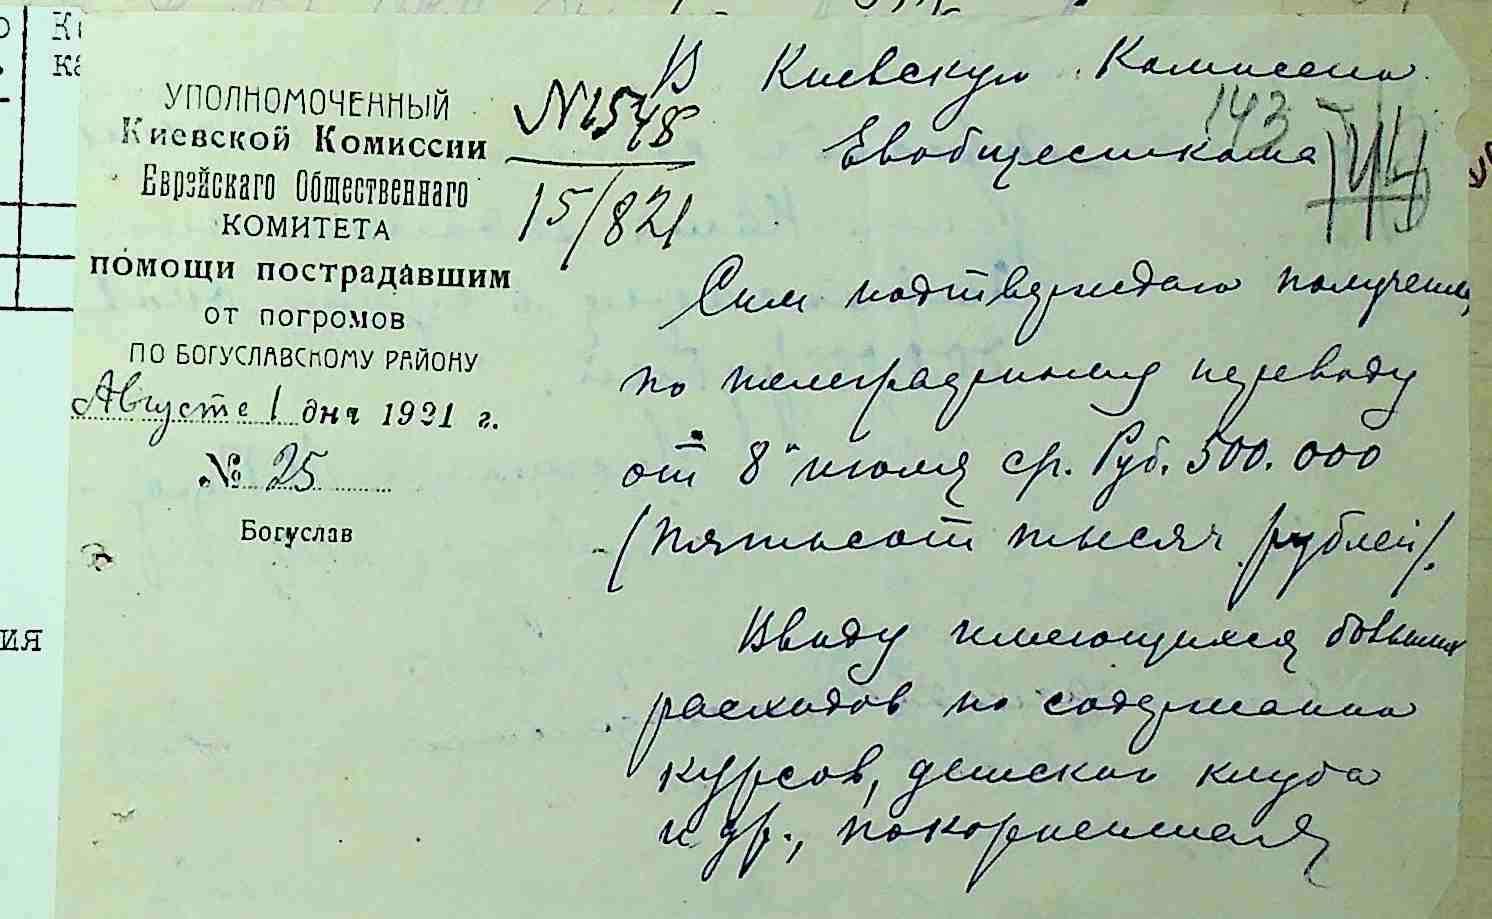 УПОЛНОМОЧЕННЫЙ
Киевской Комиссии
Еврейскаго Общественнаго
КОМИТЕТА
помощи пострадавшим
от погромов
ПО БОГУСЛАВСКОМУ РАЙОНУ
Августа 1 дня 1921 г.
№ 25
Богуслав
№ 1548
15/821
В Киевскую Комиссию
Евобщесткома
143
144
Сим подтверждаю получение
по телеграфному переводу
от 8 июля ср. Руб. 500.000
(Пятьсот тысяч рублей).
Ввиду имеющихся больших
расходов по содержанию
курсов, детского клуба
и др.,
ия